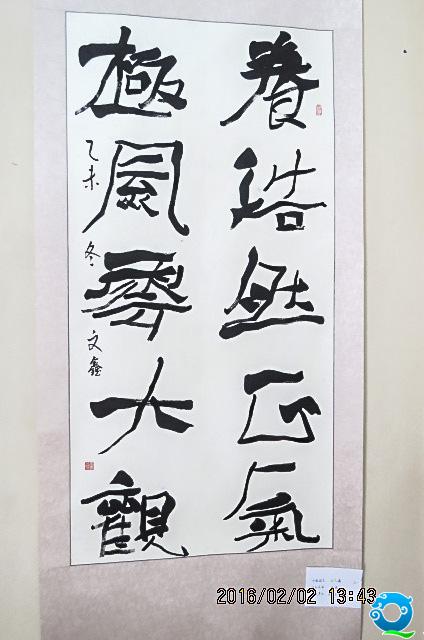 養浩然正氣
極風雲大觀
乙未冬文鑫
2016/02/02 13:43